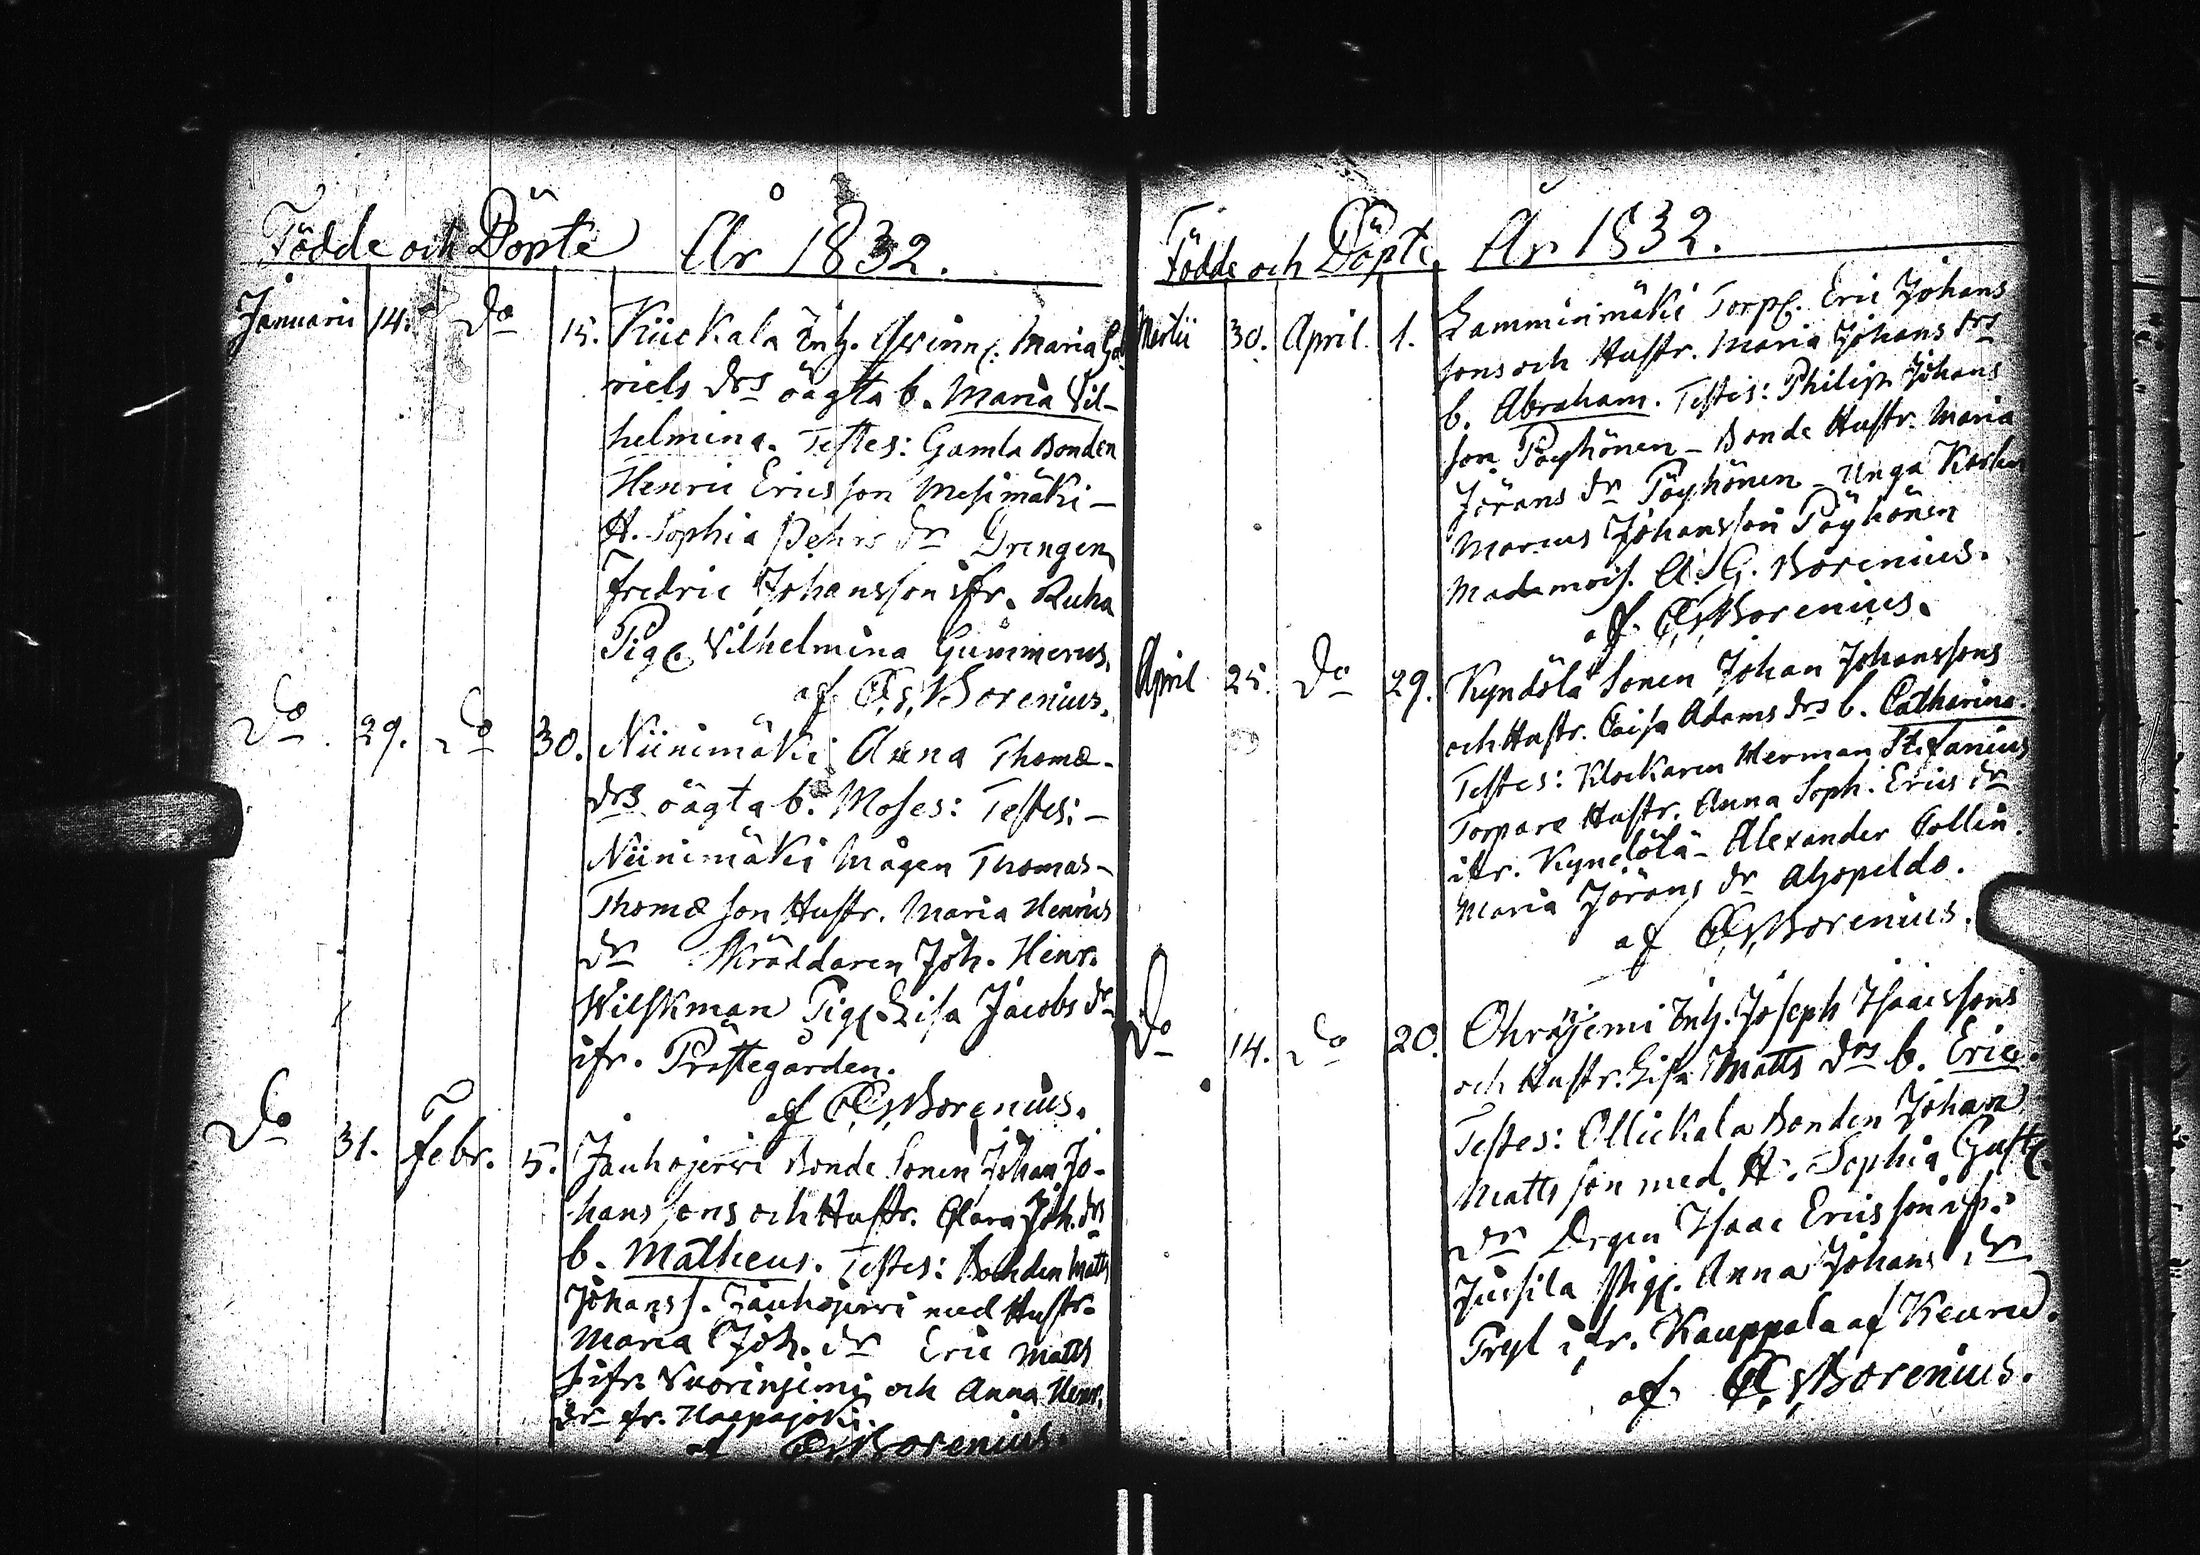 Födde och Döpte År 1832.
Januarii 14. Do 15. Kiickala Inh. Qvinn. Maria Gab
riels drs oägta b. Maria Vil-
helmina. Testes: Gamla Bonden
Henric Ericsson Mesimäki -
H. Sophia Pehrs dr Drengen
Fredric Johansson ifr. Ruha
Pig. Vilhelmina Gummerus.
af Borenius.
Do 29. Do 30. Niinimäki Anna Thomæ-
drs oägta b. Moses: Testes: -
Niinimäki Mågen Thomas-
Thomæ son Hustr. Maria Henrics
dr Skräddaren Joh. Henr.
Wilskman Pig. Lisa Jacobs dr
ifr. Prästegården.
af Borenius.
Do 31. Febr. 5. Jauhojerwi Bonde Sonen Johan Jo-
hanssons och Hustr. Clara Joh. drs
b. Matheus. Testes: Bonden Matts
Johanss. Jauhojerwi med Hustr.
Maria Joh. dr Eric Matts
s. ifr. Vuorinjemi och Anna Henr.
dr fr. Haapajoki.
af Borenius.
Födde och Döpte År 1832.
Martii 30. April. 1. Lamminmäki Torp. Eric Johans
sons och Hustr. Maria Johans drs
b. Abraham. Testes: Philip Johans
son Pöyhönen - Bonde Hustr. Maria
Jörans dr Pöyhönen - Unga Karlen
Marcus Johansson Pöyhönen
Madamois. A. G. Borenius.
af Borenius.
April 25. Do 29. Kyndölä Sonen Johan Johanssons
och Hustr. Caisa Adams drs b. Catharina.
Testes: Klockaren Herman Stefanius
Torpare Hustr. Anna Soph. Erics dr
ifr. Kyndölä - Alexander Collin.
Maria Jörans dr
af Borenius.
Do 14. Do 20. Ohranjemi Inh. Joseph Isaacssons
och Hustr. Lisa Matts drs b. Eric.
Testes: Ollickala Bonden Johan
Mattsson med H. Sophia Gust.
dr Drgen Isaac Ericsson ifr.
Jussila Pig. Anna Johans dr
ifr. Kauppala af Keuru.
af Borenius.